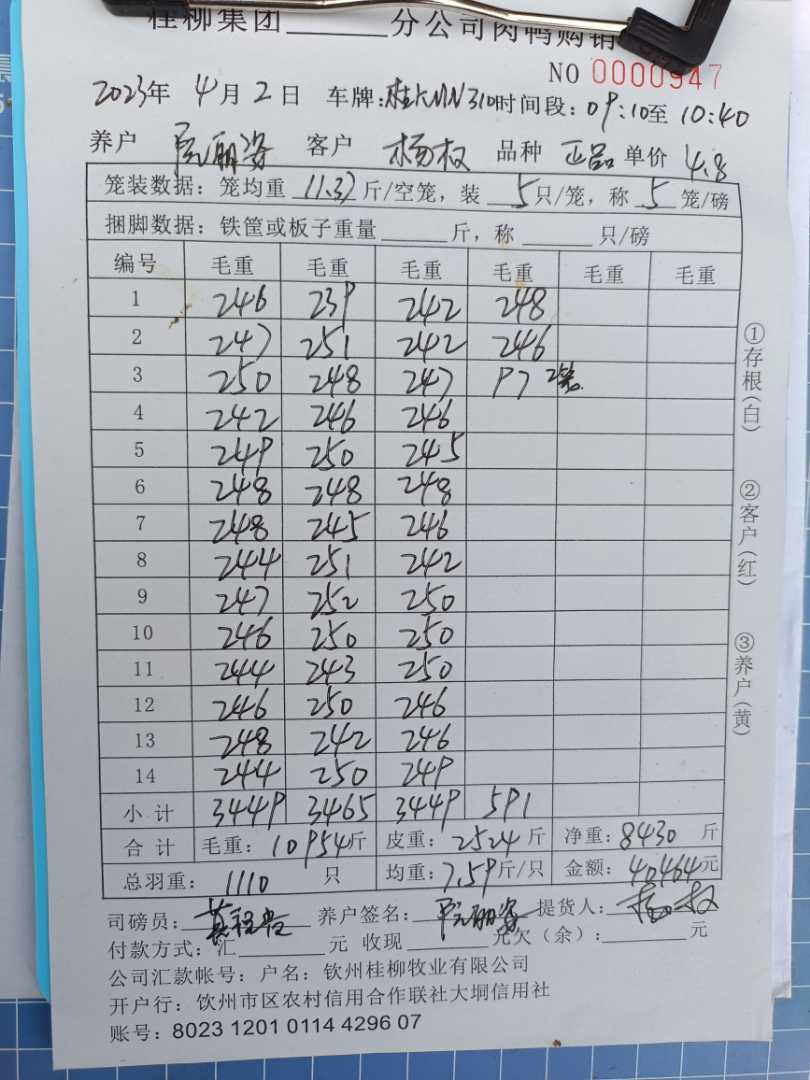 桂柳集团______分公司肉鸭购销
NO 0000947
2023年 4月2日 车牌:桂KMN310 时间段:09:10至10:40
养户 阮丽姿 客户 杨权 品种 正品 单价 4.8
笼装数据:笼均重 11.37 斤/空笼,装 5 只/笼,称 5 笼/磅
捆脚数据:铁筐或板子重量______斤,称______只/磅
编号 毛重 毛重 毛重 毛重 毛重 毛重
1 246 239 242 248
2 247 251 242 246
3 250 248 247 97
4 242 246 246
5 249 250 245
6 248 248 248
7 248 245 246
8 244 251 242
9 247 252 250
10 246 250 250
11 244 243 250
12 246 250 246
13 248 242 246
14 244 250 249
小计 3449 3465 3449 591
合计 毛重:10954斤 皮重:2524斤 净重:8430斤
总羽重:1110 只 均重:7.59斤/只 金额:40464元
司磅员: 养户签名:阮丽姿 提货人:杨权
付款方式:汇______元 收现______元欠(余):______元
公司汇款帐号:户名:钦州桂柳牧业有限公司
开户行:钦州市区农村信用合作联社大垌信用社
账号:8023 1201 0114 4296 07
①存根(白)
②客户(红)
③养户(黄)